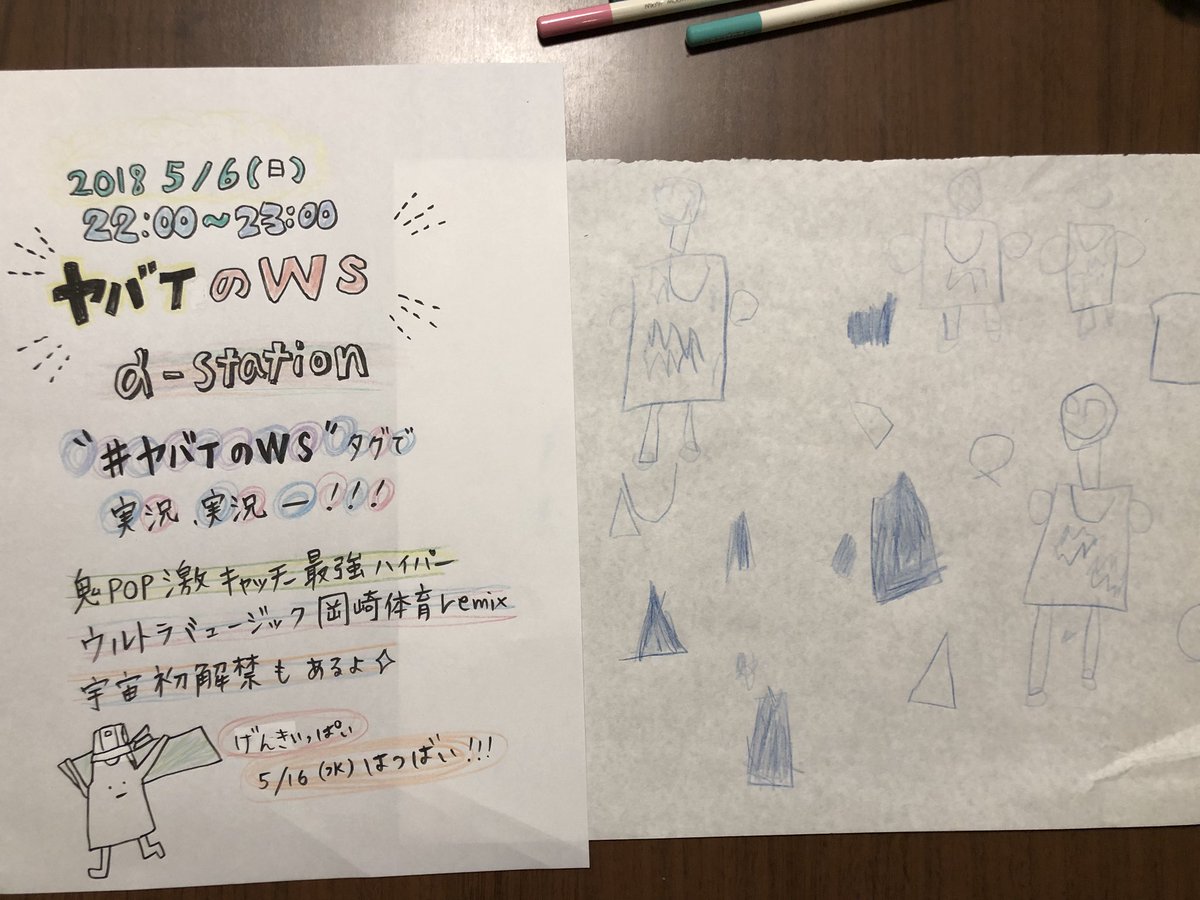 2018 5/6(日)
22:00~23:00
ヤバイのWS
d-station
"#ヤバイのWS"タグで
実況、実況ー!!!
鬼POP激キャッチー最強ハイパー
ウルトラミュージック岡崎体育remix
宇宙初解禁もあるよ✧
げんきいっぱい
5/16(水)はつばい!!!